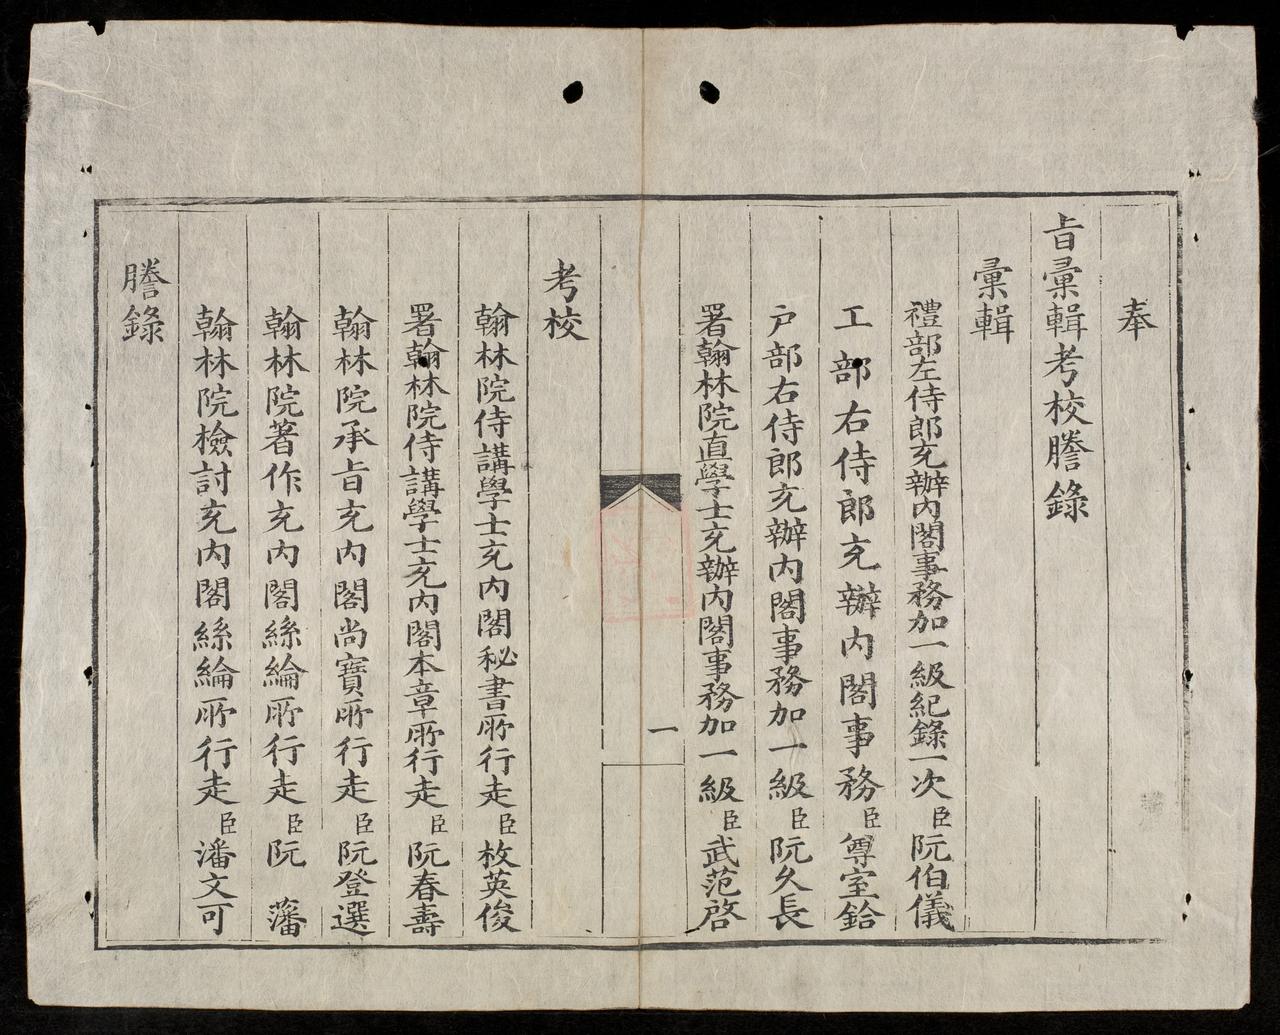 奉
㫖彙輯考校謄錄
彙輯
禮部左侍郎充辦內閣事務加一級紀錄一次臣阮伯儀
工部右侍郎充辦內閣事務臣尊室鉿
戶部右侍郎充辦內閣事務加一級臣阮久長
署翰林院直學士充辦內閣事務加一級臣武范啓
一
考校
翰林院侍講學士充內閣秘書所行走臣枚英俊
署翰林院侍講學士充內閣本章所行走臣阮春壽
翰林院承㫖充內閣尚寶所行走臣阮登選
翰林院著作充內閣絲綸所行走臣阮藩
翰林院檢討充內閣絲綸所行走臣潘文可
謄錄